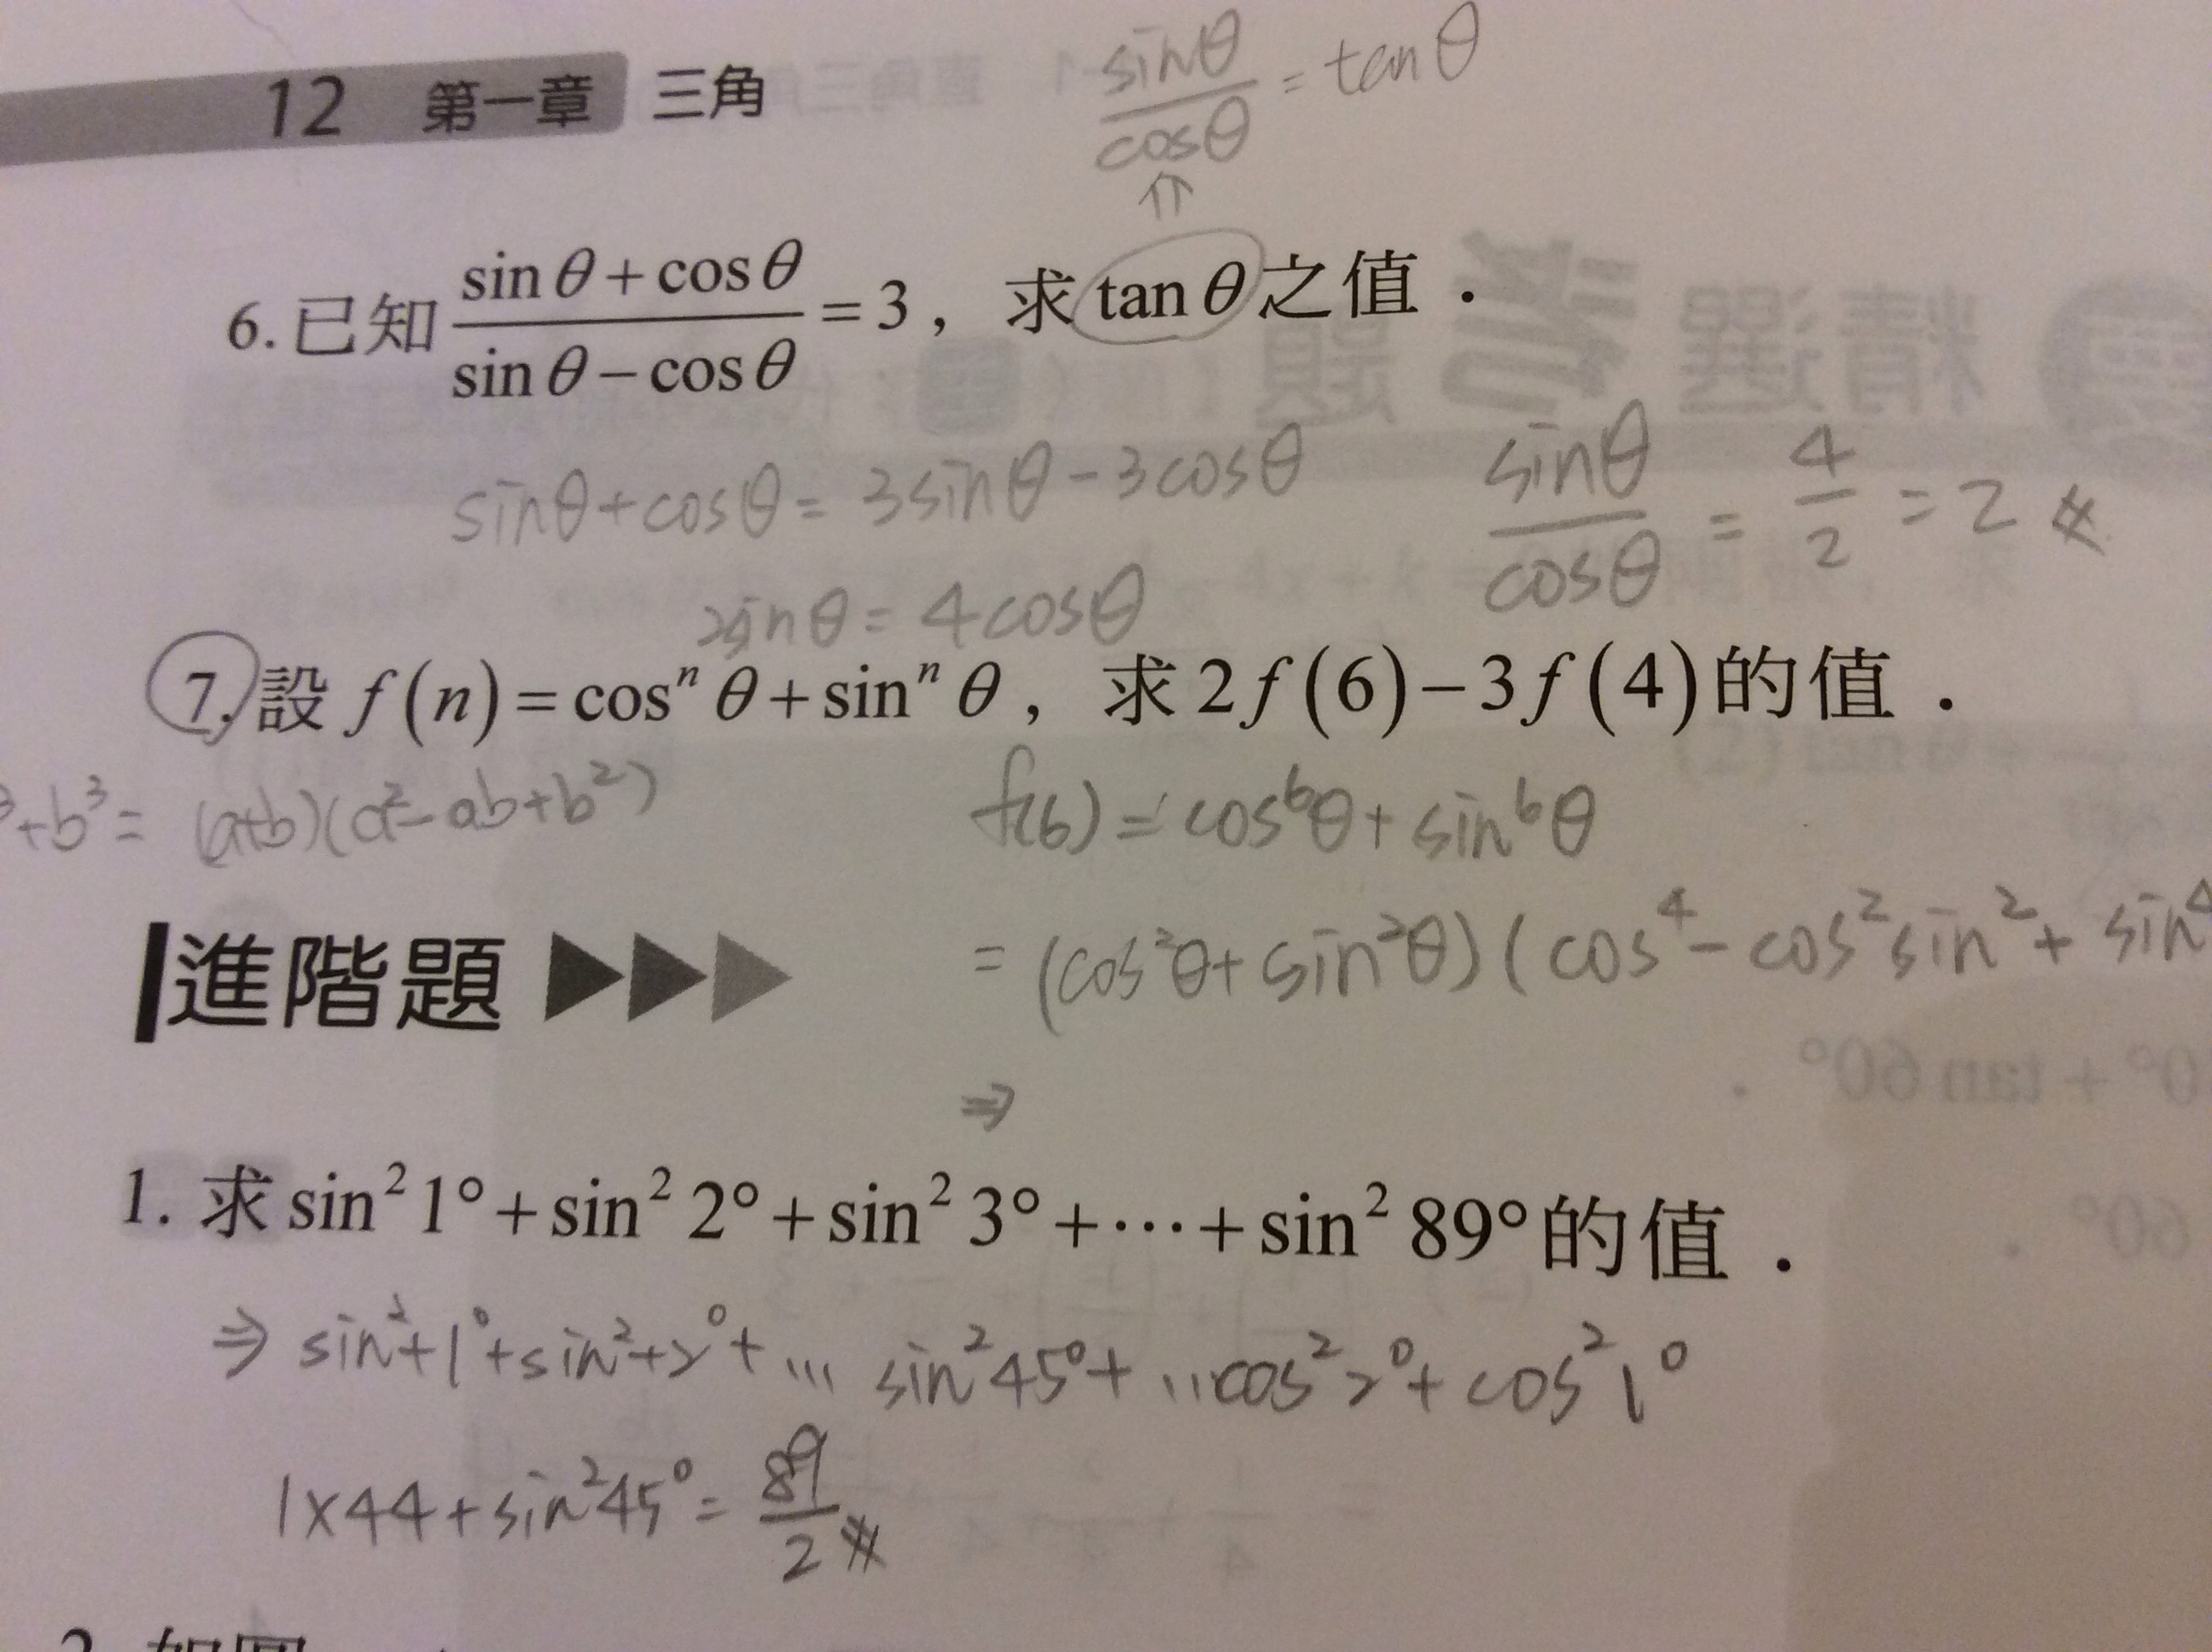 12 第一章 三角
sinθ/cosθ = tanθ
⇑
6. 已知 (sin θ + cos θ)/(sin θ − cos θ) = 3，求 tan θ 之值．
sinθ+cosθ = 3sinθ-3cosθ
2sinθ = 4cosθ
sinθ/cosθ = 4/2 = 2 #
7. 設 f(n) = cosⁿ θ + sinⁿ θ，求 2f(6) − 3f(4) 的值．
³+b³ = (a+b)(a²-ab+b²)
f(6) = cos⁶θ + sin⁶θ
= (cos²θ+sin²θ)(cos⁴-cos²sin²+sin⁴
進階題 ▶▶▶
⇒
1. 求 sin² 1° + sin² 2° + sin² 3° + ⋯ + sin² 89° 的值．
⇒ sin²+1°+sin²+2°+ ... sin²45°+ ...cos²2°+cos²1°
1×44+sin²45° = 89/2 #